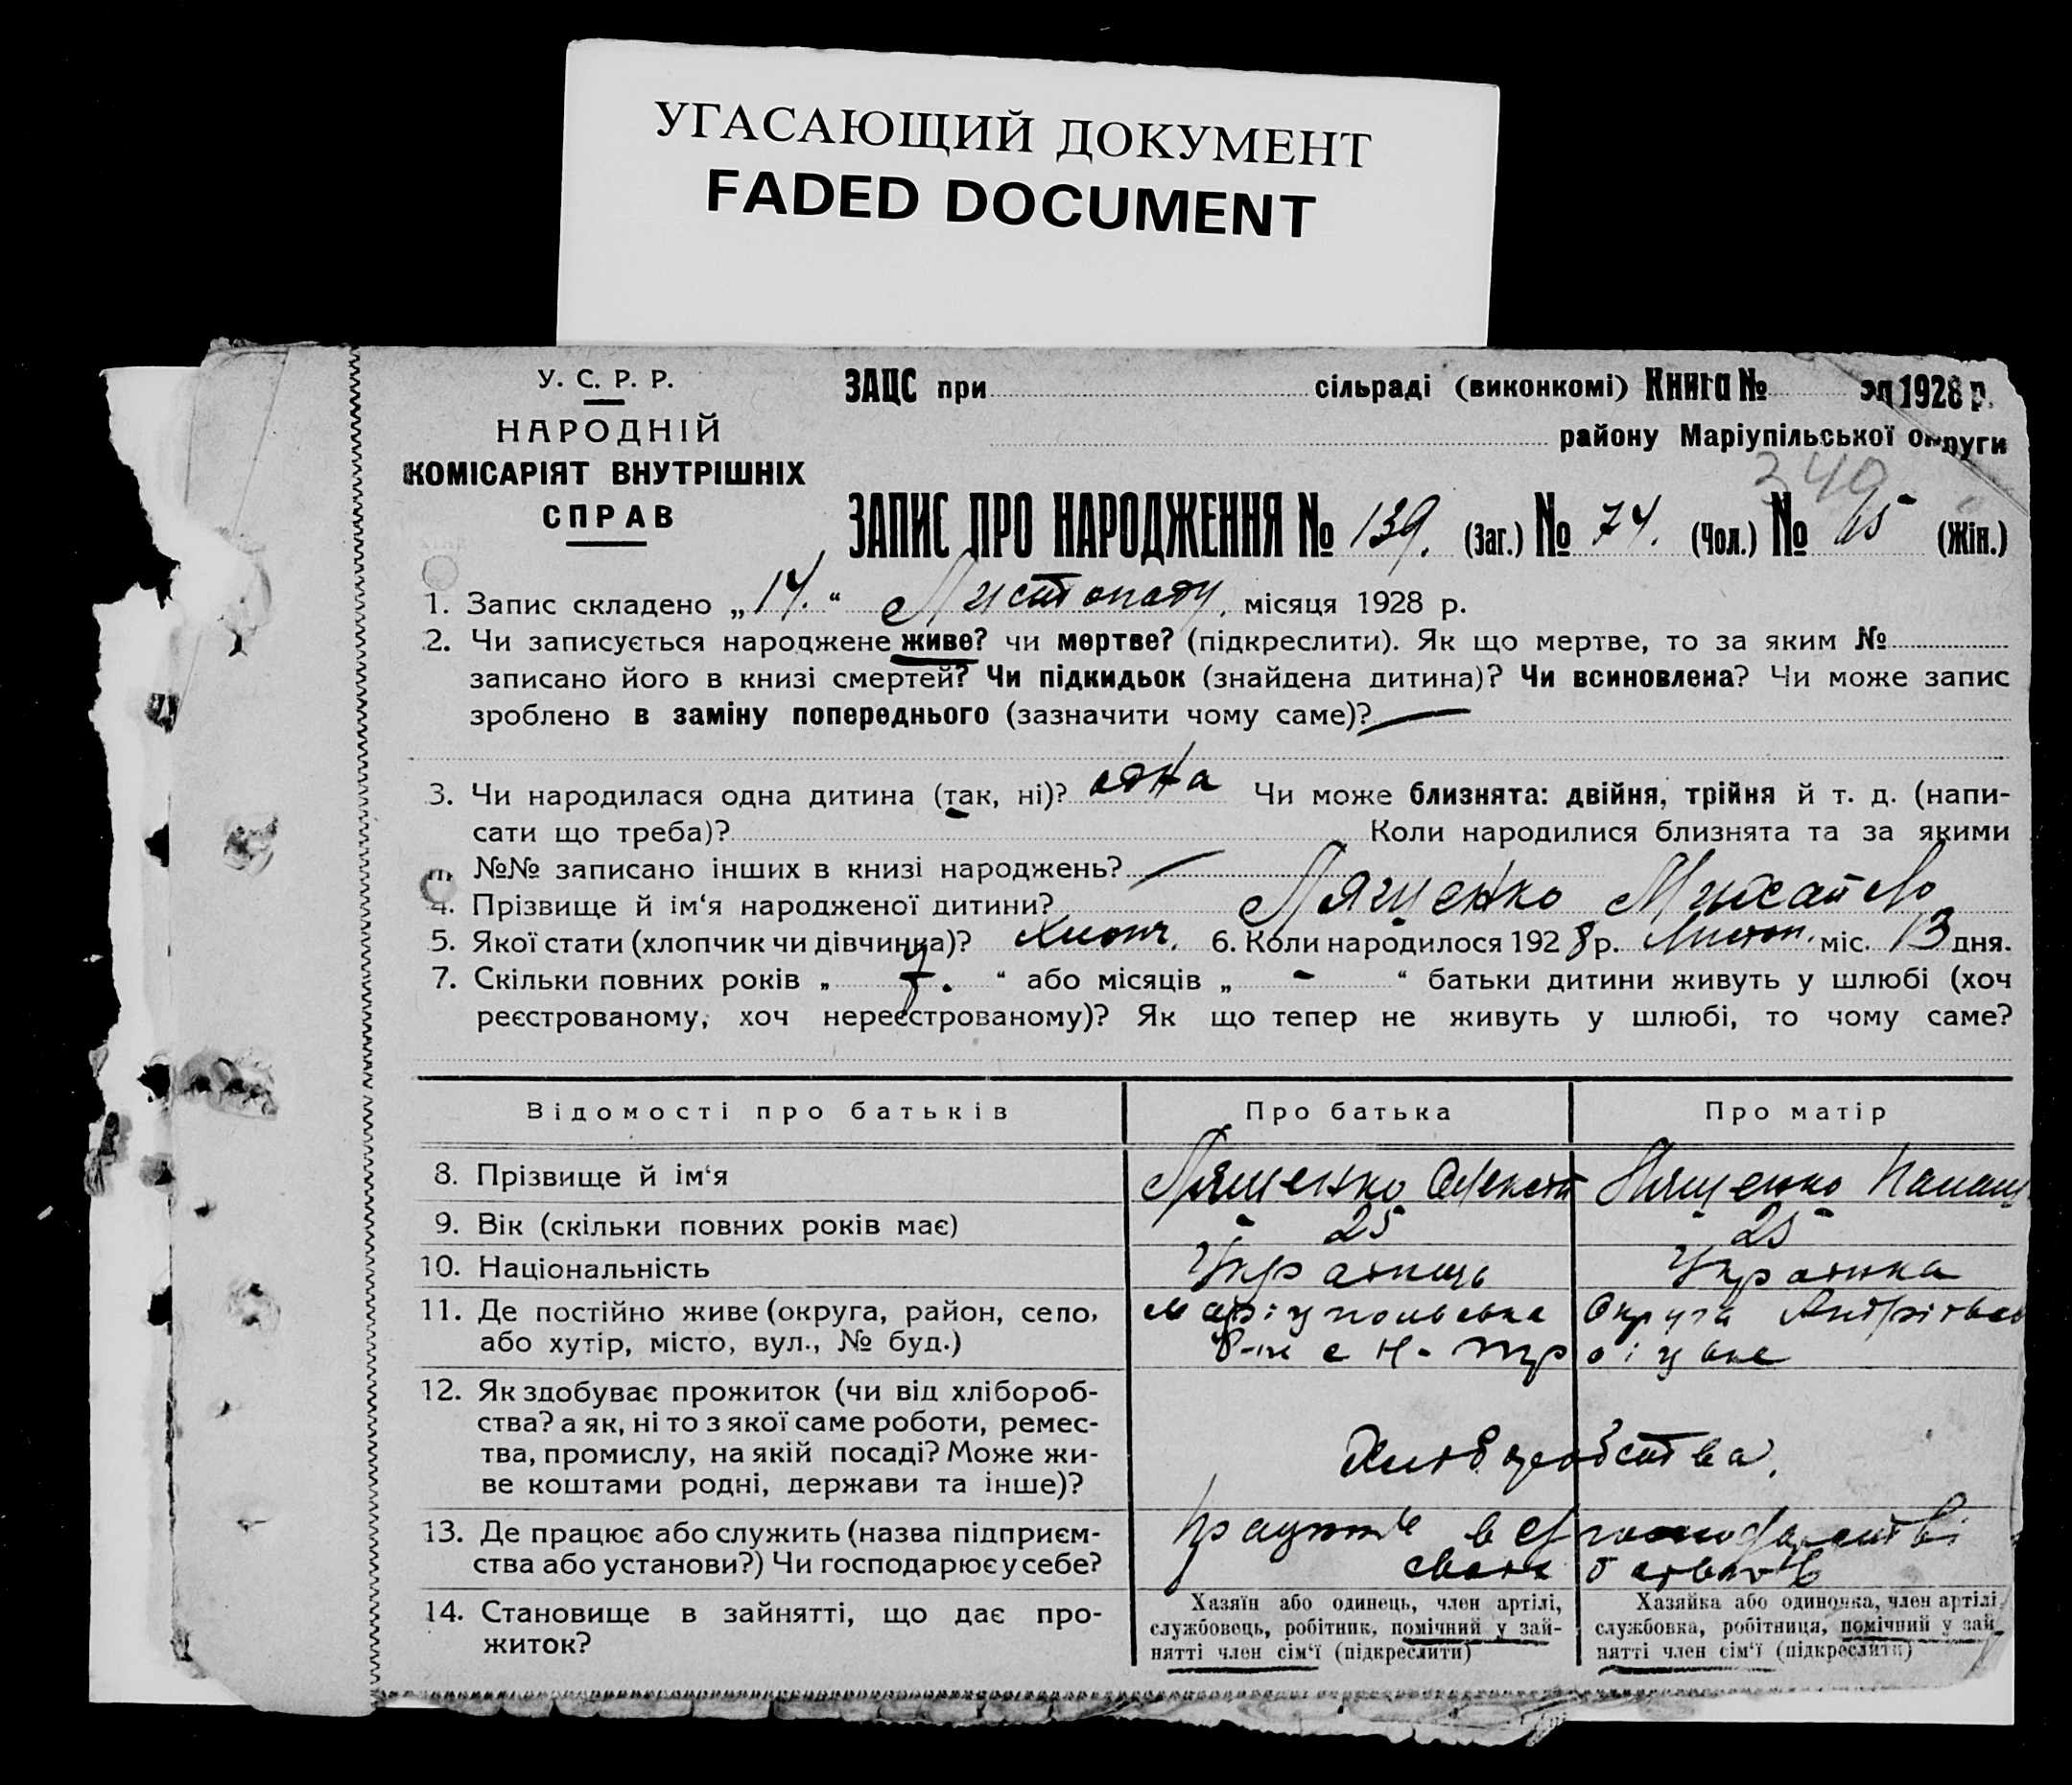 УГАСАЮЩИЙ ДОКУМЕНТ
FADED DOCUMENT
У. С. Р. Р.
НАРОДНІЙ
КОМІСАРІЯТ ВНУТРІШНІХ
СПРАВ
ЗАЦС при сільраді (виконкомі) Книга № за 1928 р.
району Маріупільської округи
340
ЗАПИС ПРО НАРОДЖЕННЯ № 139. (Заг.) № 74. (Чол.) № 65 (Жін.)
1. Запис складено „14.“ Листопаду, місяця 1928 р.
2. Чи записується народжене живе? чи мертве? (підкреслити). Як що мертве, то за яким №
записано його в книзі смертей? Чи підкидьок (знайдена дитина)? Чи всиновлена? Чи може запис
зроблено в заміну попереднього (зазначити чому саме)?
3. Чи народилася одна дитина (так, ні)? одна Чи може близнята: двійня, трійня й т. д. (напи-
сати що треба)? Коли народилися близнята та за якими
№№ записано інших в книзі народжень?
4. Прізвище й ім‘я народженої дитини? Лященко Михайло
5. Якої стати (хлопчик чи дівчинка)? хлопч. 6. Коли народилося 1928 р. Листоп. міс. 13 дня.
7. Скільки повних років „ “ або місяців „ - “ батьки дитини живуть у шлюбі (хоч
реєстрованому, хоч нереєстрованому)? Як що тепер не живуть у шлюбі, то чому саме?
Відомості про батьків Про батька Про матір
8. Прізвище й ім‘я Лященко Олексій Лященко
9. Вік (скільки повних років має) 25 25
10. Національність Українець Українка
11. Де постійно живе (округа, район, село, Маріупольська Округа
або хутір, місто, вул., № буд.) Р-н с Н-Троїцьке
12. Як здобуває прожиток (чи від хлібороб-
ства? а як, ні то з якої саме роботи, ремес-
тва, промислу, на якій посаді? Може жи- Хліборобства.
ве коштами родні, держави та інше)?
13. Де працює або служить (назва підприєм- Працюють в господарстві
ства або установи?) Чи господарює у себе? своїх батьків
14. Становище в зайнятті, що дає про-
житок?
Хазяїн або одинець, член артілі,
службовець, робітник, помічний у зай-
нятті член сім‘ї (підкреслити)
Хазяйка або одиночка, член артілі,
службовка, робітниця, помічний у зай-
нятті член сім‘ї (підкреслити)